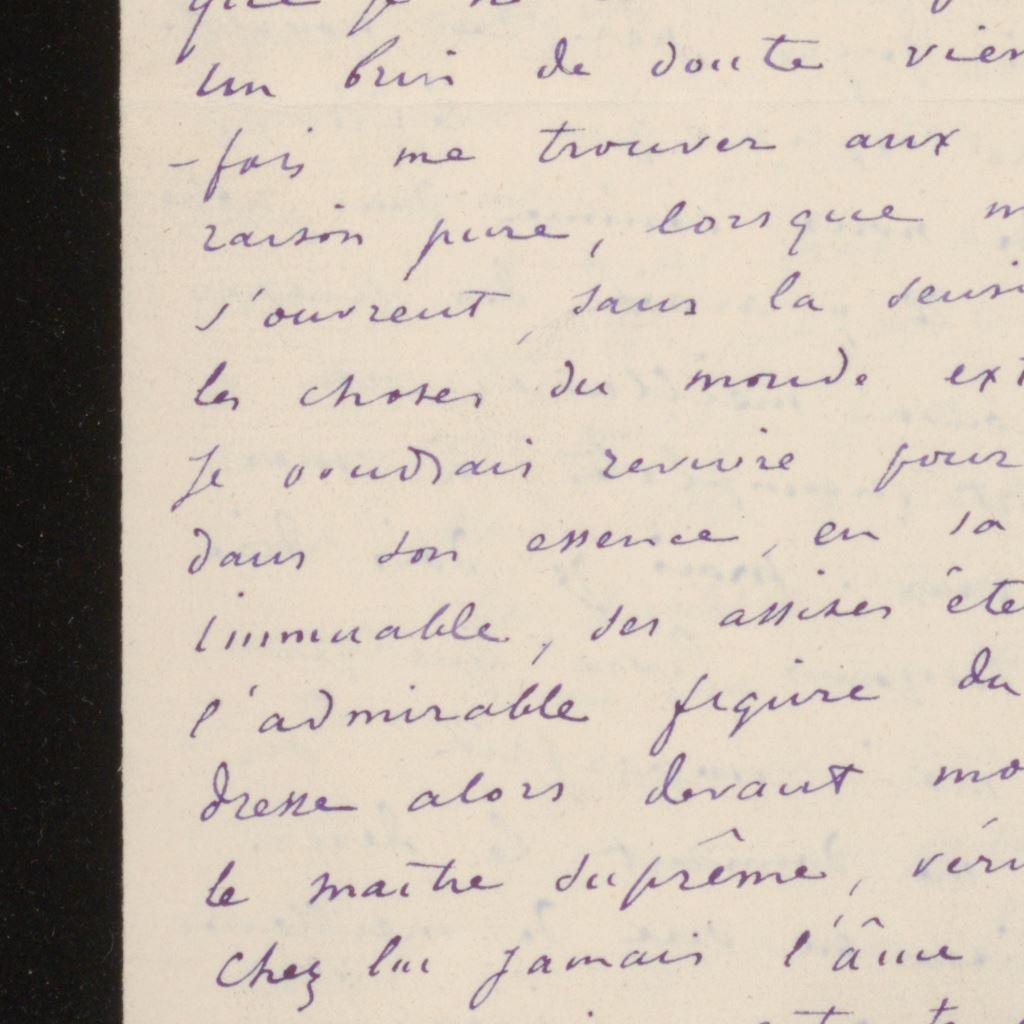 que je ne
un brin de doute vien
-fois me trouver aux
raison pure, lorsque m
s'ouvrent, sans la sensi
les choses du monde ext
Je voudrais revivre pour
dans son essence, en sa
immuable, ses assises éte
l'admirable figure du
dresse alors devant mo
le maître suprême, véri
Chez lui jamais l'âme